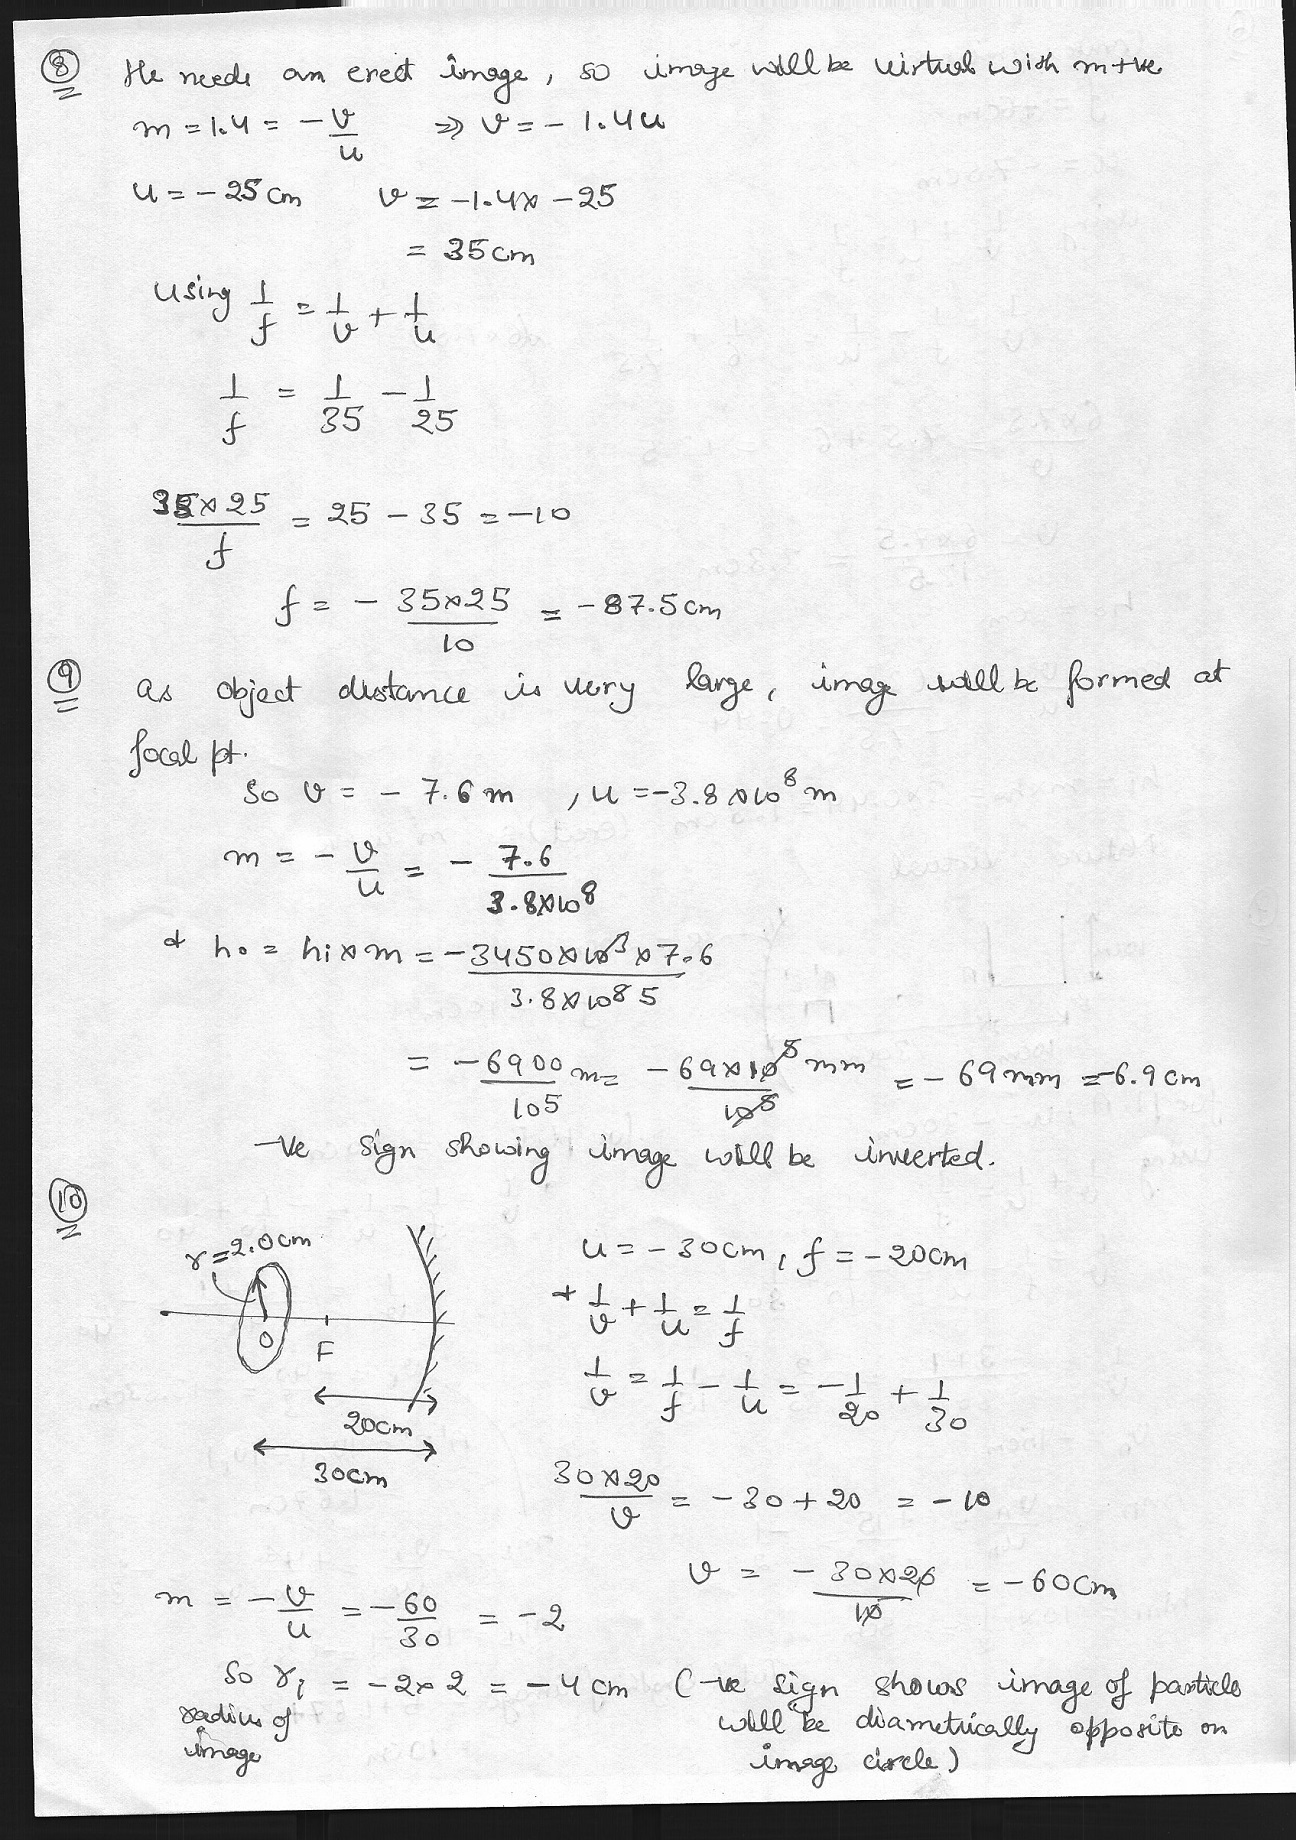 8 He needs an erect image, so image will be virtual with m +ve
m = 1.4 = -v/u ⇒ v = - 1.4u
u = - 25cm v = -1.4 × -25
= 35cm
Using 1/f = 1/v + 1/u
1/f = 1/35 - 1/25
35×25/f = 25 - 35 = -10
f = - 35×25/10 = -87.5cm
9 as object distance is very large, image will be formed at
focal pt.
So v = - 7.6m , u = -3.8×10⁸ m
m = - v/u = - 7.6/3.8×10⁸
& ho = hi×m = -3450×10³×7.6/3.8×10⁸ 5
= -6900/10⁵ m = -69×10⁵ mm/10⁵ = - 69mm = -6.9cm
-ve sign showing image will be inverted.
10
r=2.0cm
O
F
20cm
30cm
u = -30cm, f = -20cm
+ 1/v + 1/u = 1/f
1/v = 1/f - 1/u = -1/20 + 1/30
30×20/v = -30+20 = -10
v = - 30×20/10 = -60cm
m = -v/u = -60/30 = -2
So ri = -2×2 = -4cm (-ve sign shows image of particle
radius of
image
will be diametrically opposite on
image circle)